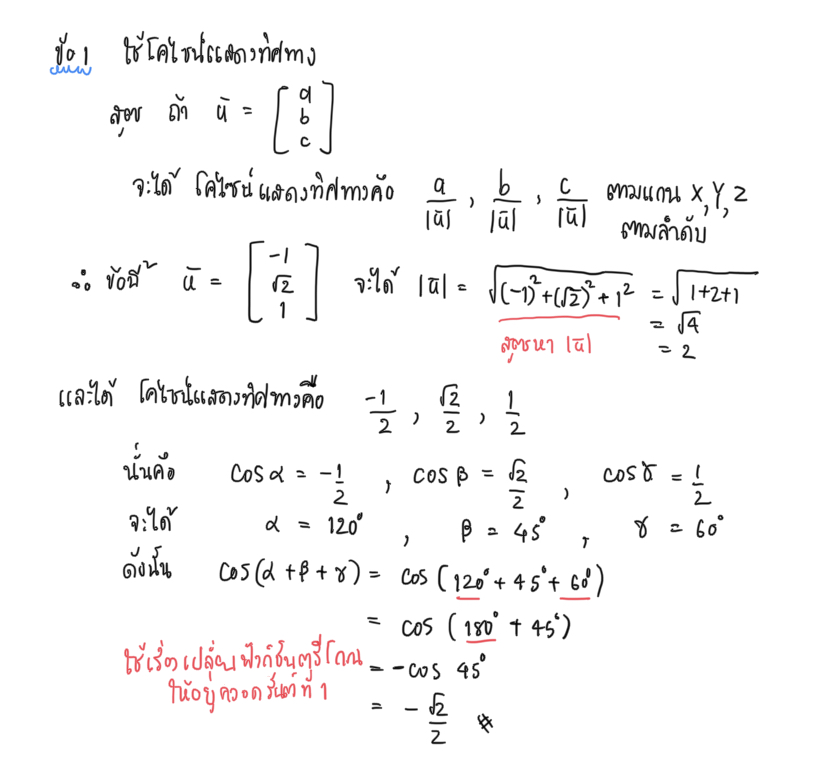 ข้อ 1 ใช้โคไซน์แสดงทิศทาง
สูตร ถ้า ū = [a b c]
จะได้ โคไซน์แสดงทิศทางคือ a/|ū| , b/|ū| , c/|ū| ตามแกน X, Y, Z
ตามลำดับ
∴ ข้อนี้ ū = [-1 √2 1] จะได้ |ū| = √((-1)²+(√2)²+1²) = √(1+2+1)
= √4
สูตรหา |ū| = 2
และได้ โคไซน์แสดงทิศทางคือ -1/2 , √2/2 , 1/2
นั่นคือ cos α = -1/2 , cos β = √2/2 , cos γ = 1/2
จะได้ α = 120° , β = 45° , γ = 60°
ดังนั้น cos(α + β + γ) = cos (120° + 45° + 60°)
= cos (180° + 45°)
ใช้เรื่องเปลี่ยนฟังก์ชันตรีโกณ = -cos 45°
ให้อยู่ควอดรันต์ที่ 1
= - √2/2 #